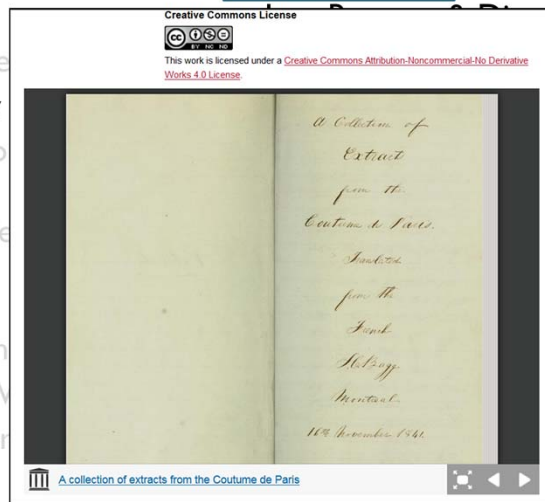 Creative Commons License
cc
BY NC ND
This work is licensed under a Creative Commons Attribution-Noncommercial-No Derivative
Works 4.0 License.
A Collection of
Extract
from the
Coutume de Paris.
Translated
from the
French
Montreal
16th November 1841.
A collection of extracts from the Coutume de Paris